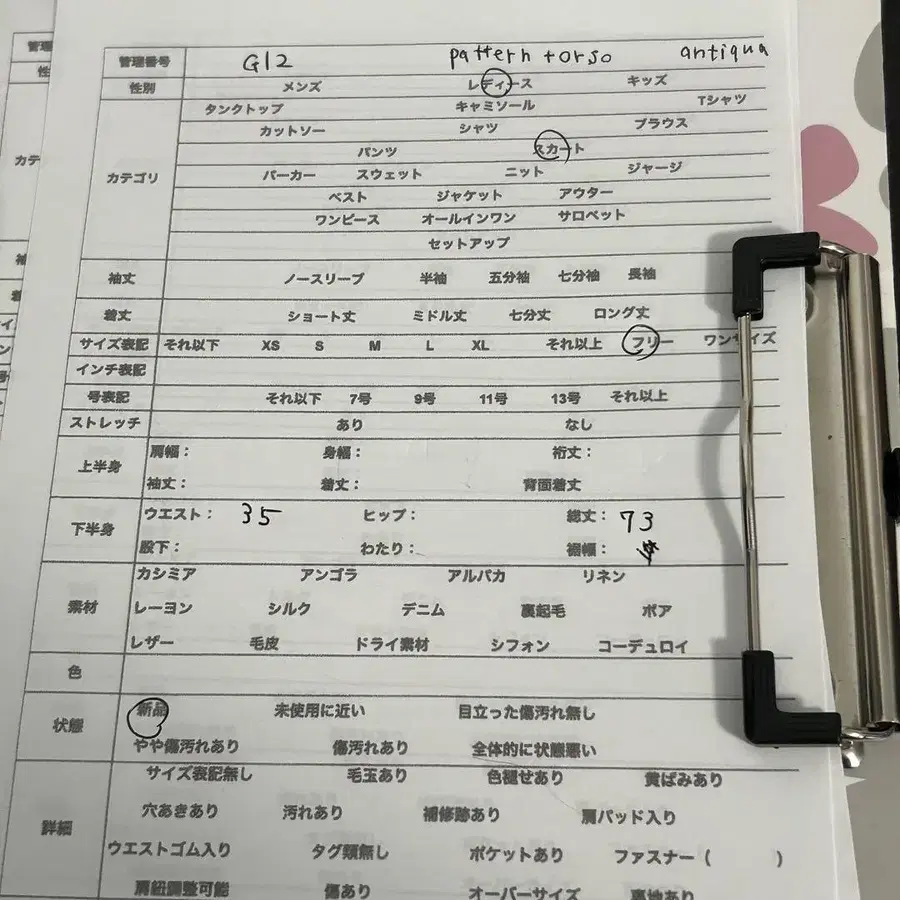 管理番号 G12 pattern torso antiqua
性別 メンズ レディース キッズ
タンクトップ キャミソール Tシャツ
カットソー シャツ ブラウス
パンツ スカート
カテゴリ パーカー スウェット ニット ジャージ
ベスト ジャケット アウター
ワンピース オールインワン サロペット
セットアップ
袖丈 ノースリーブ 半袖 五分袖 七分袖 長袖
着丈 ショート丈 ミドル丈 七分丈 ロング丈
サイズ表記 それ以下 XS S M L XL それ以上 フリー ワンサイズ
インチ表記
号表記 それ以下 7号 9号 11号 13号 それ以上
ストレッチ あり なし
上半身 肩幅: 身幅: 裄丈:
袖丈: 着丈: 背面着丈
下半身 ウエスト: 35 ヒップ: 総丈: 73
股下: わたり: 裾幅:
カシミア アンゴラ アルパカ リネン
素材 レーヨン シルク デニム 裏起毛 ボア
レザー 毛皮 ドライ素材 シフォン コーデュロイ
色
状態 新品 未使用に近い 目立った傷汚れ無し
やや傷汚れあり 傷汚れあり 全体的に状態悪い
サイズ表記無し 毛玉あり 色褪せあり 黄ばみあり
詳細 穴あきあり 汚れあり 補修跡あり 肩パッド入り
ウエストゴム入り タグ類無し ポケットあり ファスナー( )
肩紐調整可能 傷あり オーバーサイズ 裏地あり